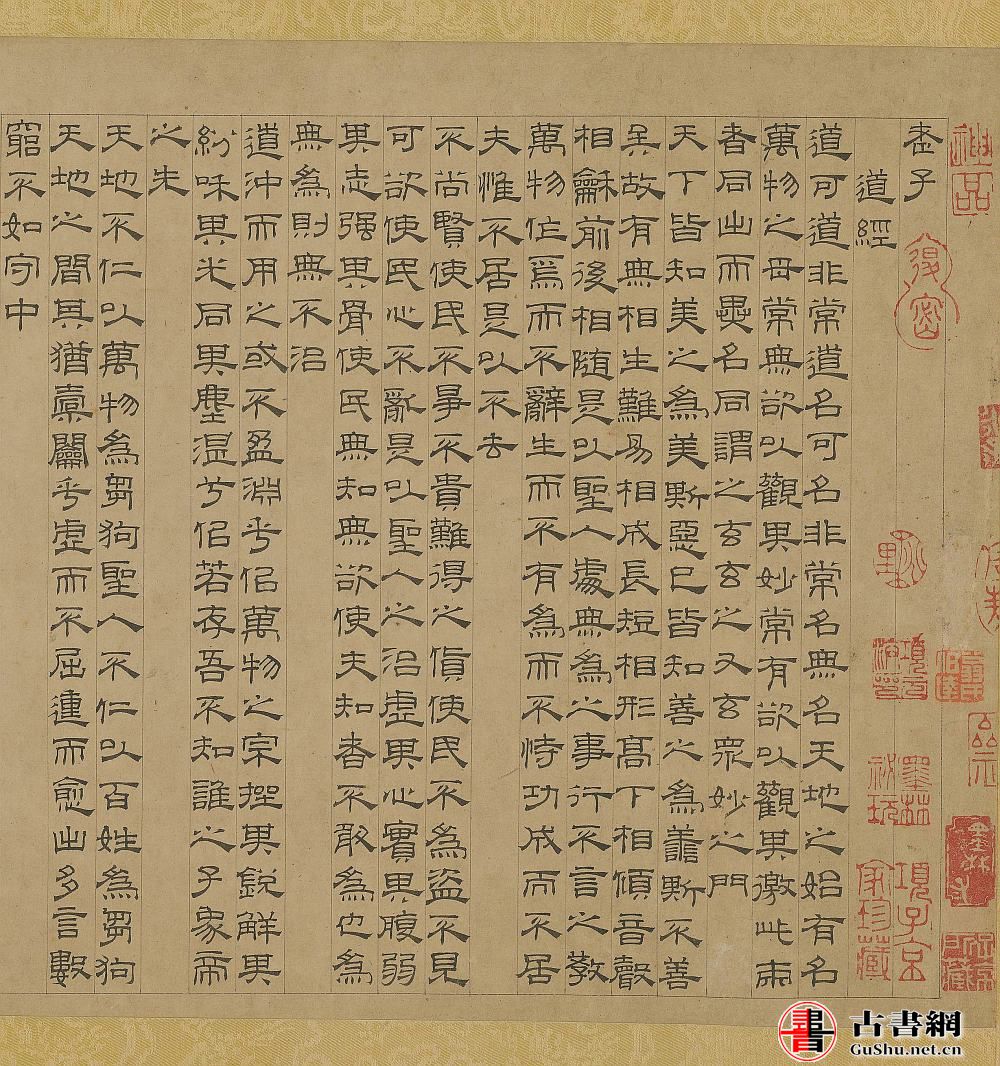 老子
道經
道可道非常道名可名非常名無名天地之始有名
萬物之母常無欲以觀其妙常有欲以觀其徼此兩
者同出而異名同謂之玄玄之又玄衆妙之門
天下皆知美之為美斯惡已皆知善之為善斯不善
矣故有無相生難易相成長短相形高下相傾音聲
相龢前後相隨是以聖人處無為之事行不言之教
萬物作焉而不辭生而不有為而不恃功成而不居
夫惟不居是以不去
不尚賢使民不爭不貴難得之貨使民不為盜不見
可欲使民心不亂是以聖人之治虛其心實其腹弱
其志强其骨使民無知無欲使夫知者不敢為也為
無為則無不治
道沖而用之或不盈淵乎佀萬物之宗挫其銳解其
紛咊其光同其塵湛兮佀若存吾不知誰之子象帝
之先
天地不仁以萬物為芻狗聖人不仁以百姓為芻狗
天地之間其猶橐籥乎虛而不屈動而愈出多言數
窮不如守中
神品
項子京家珍藏
墨林祕玩
古書網
GuShu.net.cn
書